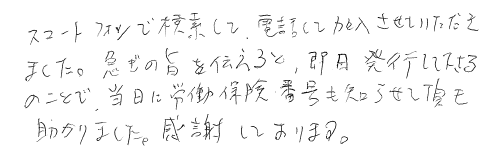 スコートフォンで検索して、電話して加入させていただき
ました。急ぎの旨を伝えると、即日発行してくださる
のことで、当日に労働保険番号も知らせて頂き
助かりました。感謝しております。